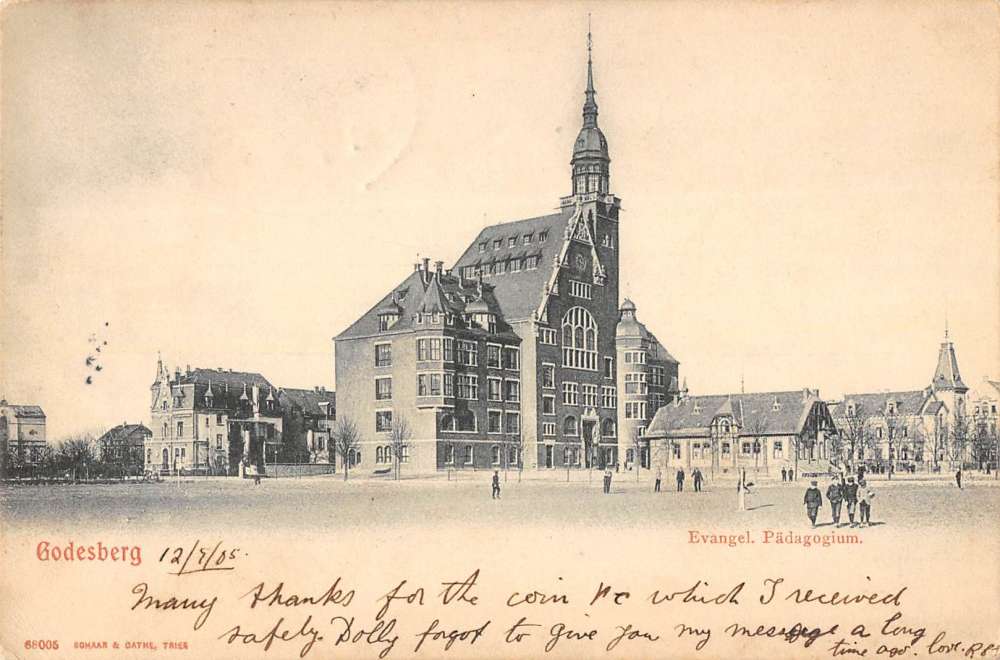 Evangel. Pädagogium.
Godesberg 12/5/05.
Many thanks for the coin &c which I received
safely. Dolly forgot to give you my message a long
time ago. love.
68005 SCHAAR & DATHE, TRIER